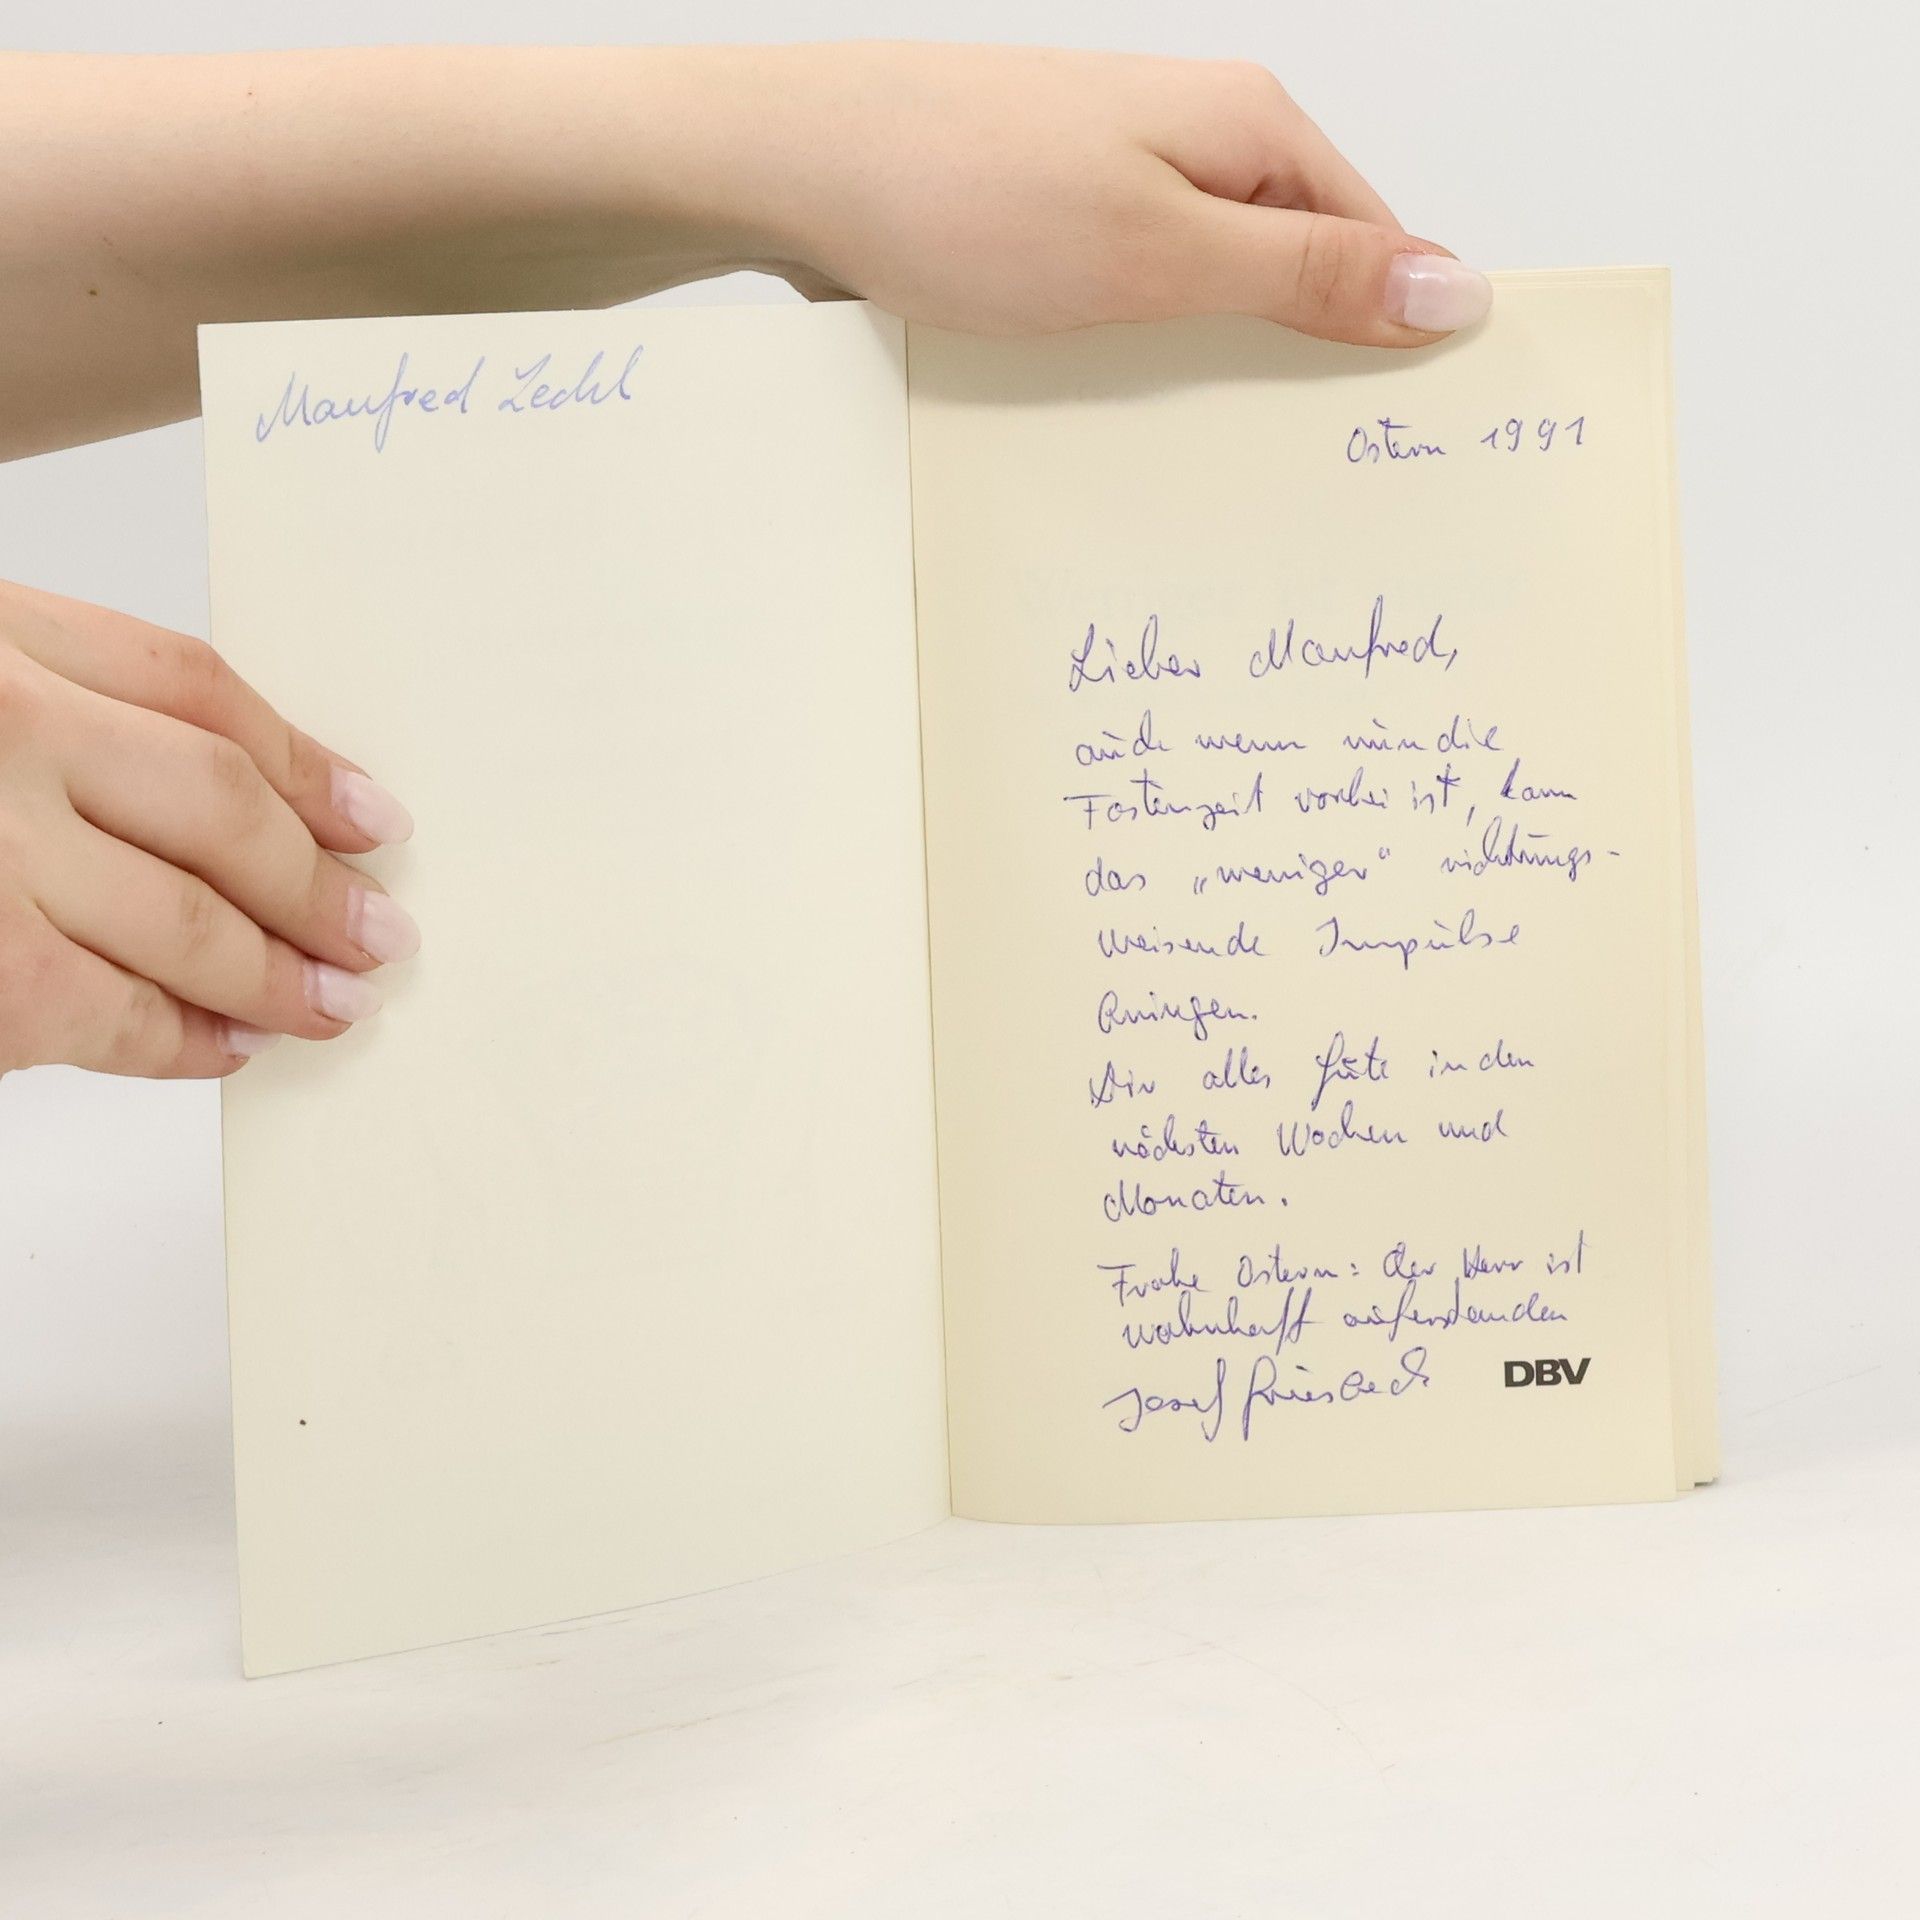 Manfred Zechl
Ostern 1991
Lieber Manfred,
auch wenn nun die
Fastenzeit vorbei ist, kann
das „weniger“ richtungs-
weisende Impulse
bringen.
Dir alles Gute in den
nächsten Wochen und
Monaten.
Frohe Ostern: der Herr ist
wahrhaft auferstanden
Josef Griesbeck
DBV